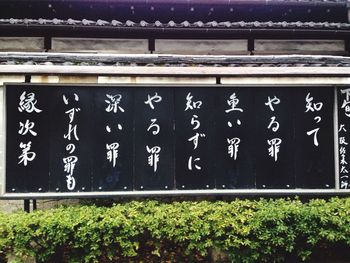 知って
やる罪
重い
知らずに
やる罪
深い罪
いずれの罪も
縁次第